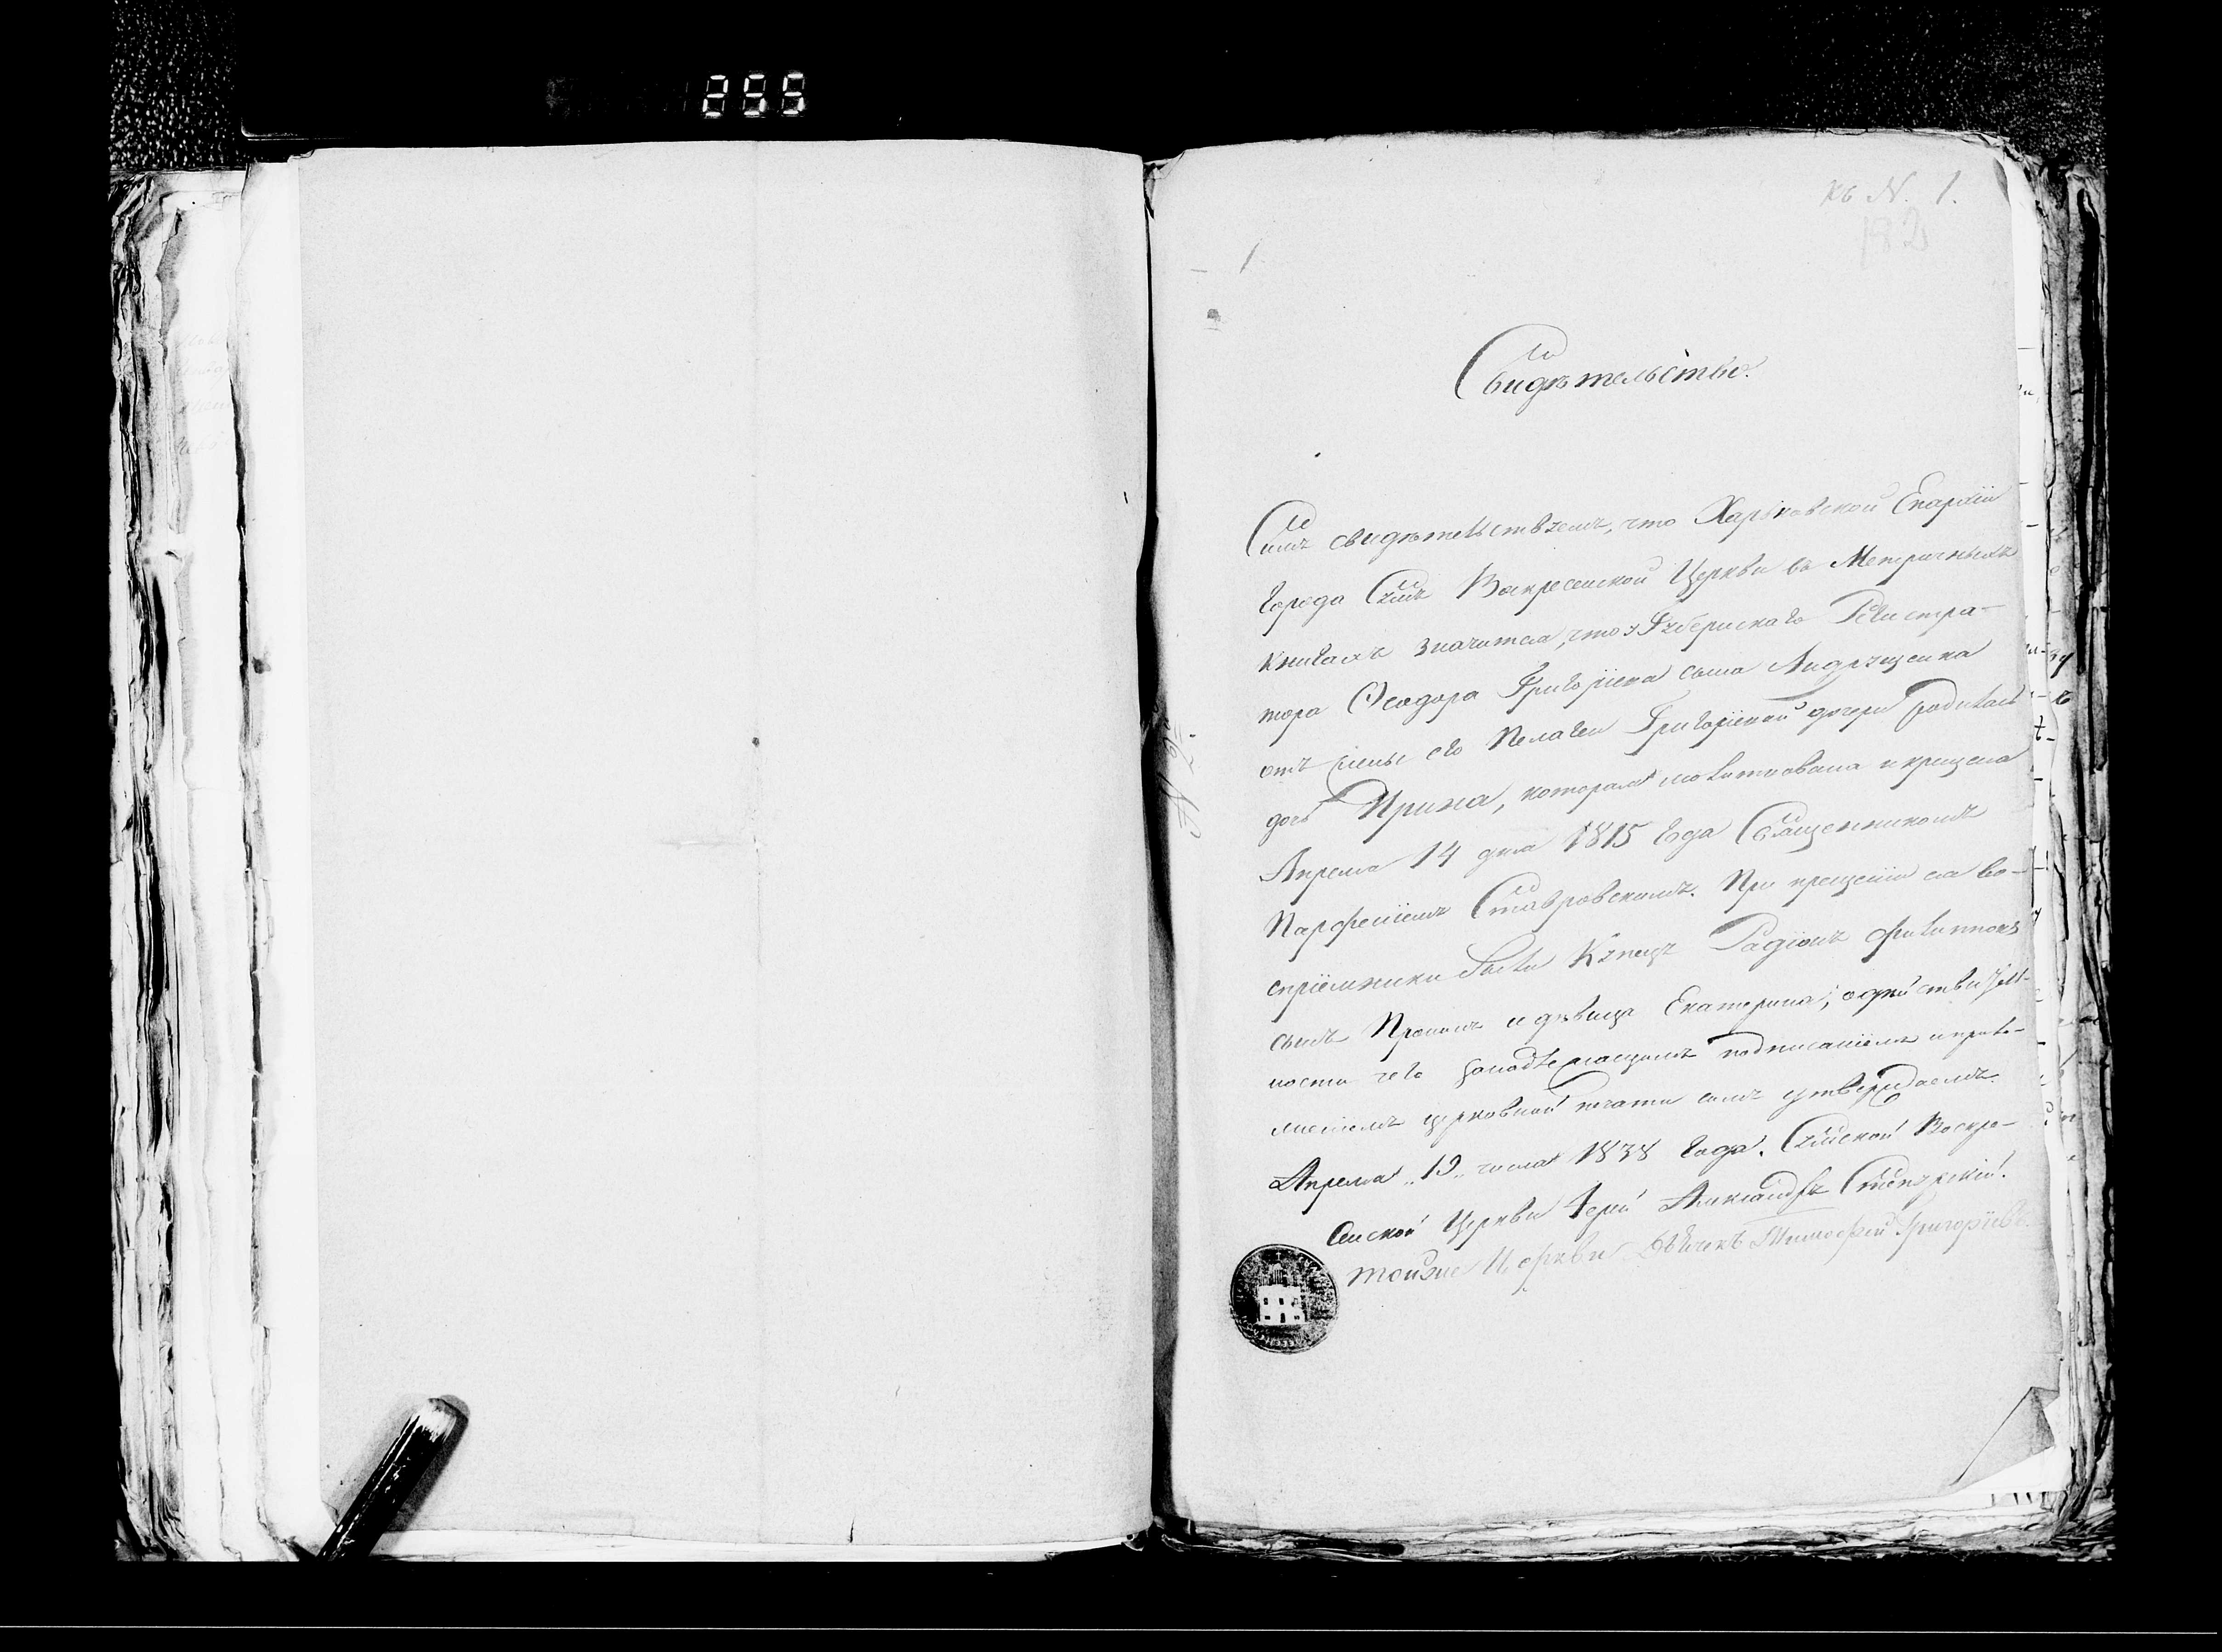 255
къ N. 1.
182
1
Свидѣтельство.
Симъ свидѣтельствуемъ, что Харьковской Епархіи
города Сумъ Воскресенской Церкви въ Метричныхъ
книгахъ значится, что у Губернскаго Регистра-
тора Ѳеодора Григоріева сына Андрущенка
отъ жены его Пелагеи Григоріевой дочери родилась
дочь Ирина, которая молитвована и крещена
Апреля 14 дня 1815 года Священникомъ
Парфеніемъ Ставровскимъ. При крещеніи ея во-
спріемники были Купецъ Радіонъ Филиповъ
сынъ и дѣвица Екатерина; о действитель-
ности чего занадлежащимъ подписаніемъ и прило-
женіемъ церковной печати симъ утверждаемъ.
Апреля „19„ числа 1838 года. Сумской Воскре-
сенской Церкви Іерей Александръ
тойже Церкви Дьячекъ Тимофей Григоріевъ.